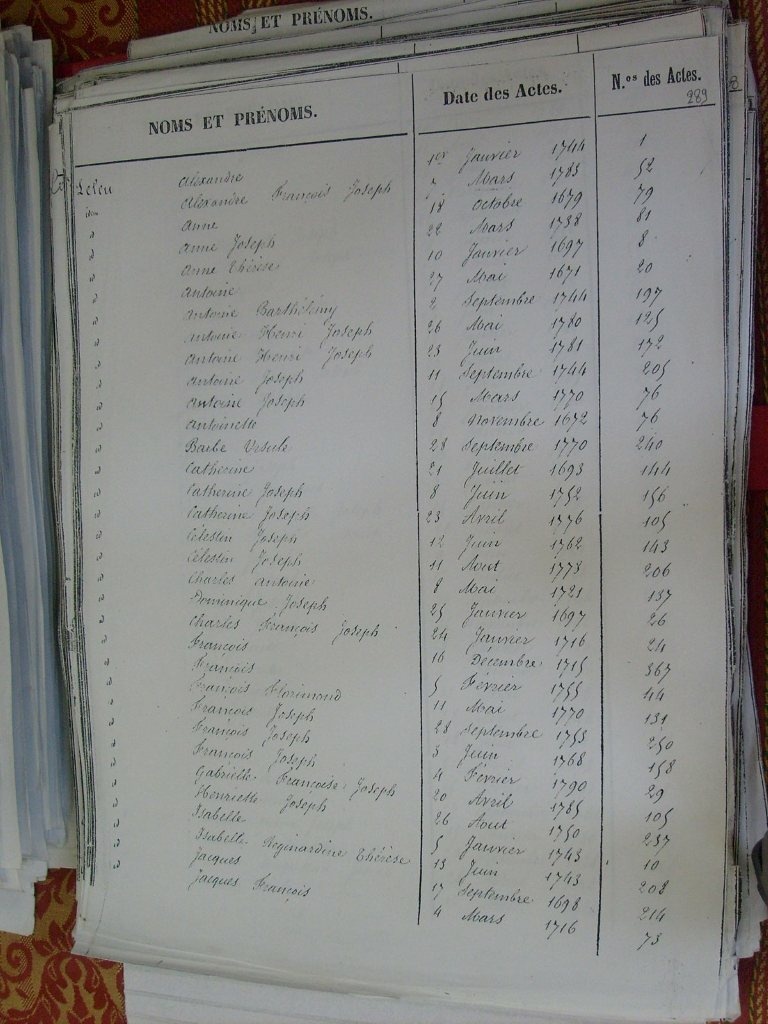 NOMS ET PRÉNOMS.
NOMS ET PRÉNOMS. Date des Actes. N.os des Actes.
289
Leleu Alexandre 1er Janvier 1744 1
idem Alexandre François Joseph " Mars 1783 52
" Anne 18 Octobre 1679 79
" Anne Joseph 22 Mars 1738 81
" Anne Thérèse 10 Janvier 1697 8
" Antoine 27 Mai 1671 20
" Antoine Barthélémy 2 Septembre 1744 197
" Antoine Henri Joseph 26 Mai 1780 125
" Antoine Henri Joseph 23 Juin 1781 172
" Antoine Joseph 11 Septembre 1744 205
" Antoine Joseph 15 Mars 1770 76
" Antoinette 8 Novembre 1672 76
" Barbe Ursule 28 Septembre 1770 240
" Catherine 21 Juillet 1693 144
" Catherine Joseph 8 Juin 1752 156
" Catherine Joseph 23 Avril 1776 105
" Célestin Joseph 12 Juin 1762 143
" Célestin Joseph 11 Aout 1773 206
" Charles Antoine 8 Mai 1721 137
" Dominique Joseph 25 Janvier 1697 26
" Charles François Joseph 24 Janvier 1716 24
" François 16 Décembre 1715 367
" François 5 Février 1755 44
" François Florimond 11 Mai 1770 131
" François Joseph 28 Septembre 1753 250
" François Joseph 3 Juin 1768 158
" François Joseph 4 Février 1790 29
" Gabrielle Françoise Joseph 20 Avril 1785 105
" Henriette Joseph 26 Aout 1750 237
" Isabelle 5 Janvier 1743 10
" Isabelle Reginardine Thérèse 13 Juin 1743 208
" Jacques 17 Septembre 1698 214
" Jacques François 4 Mars 1716 73